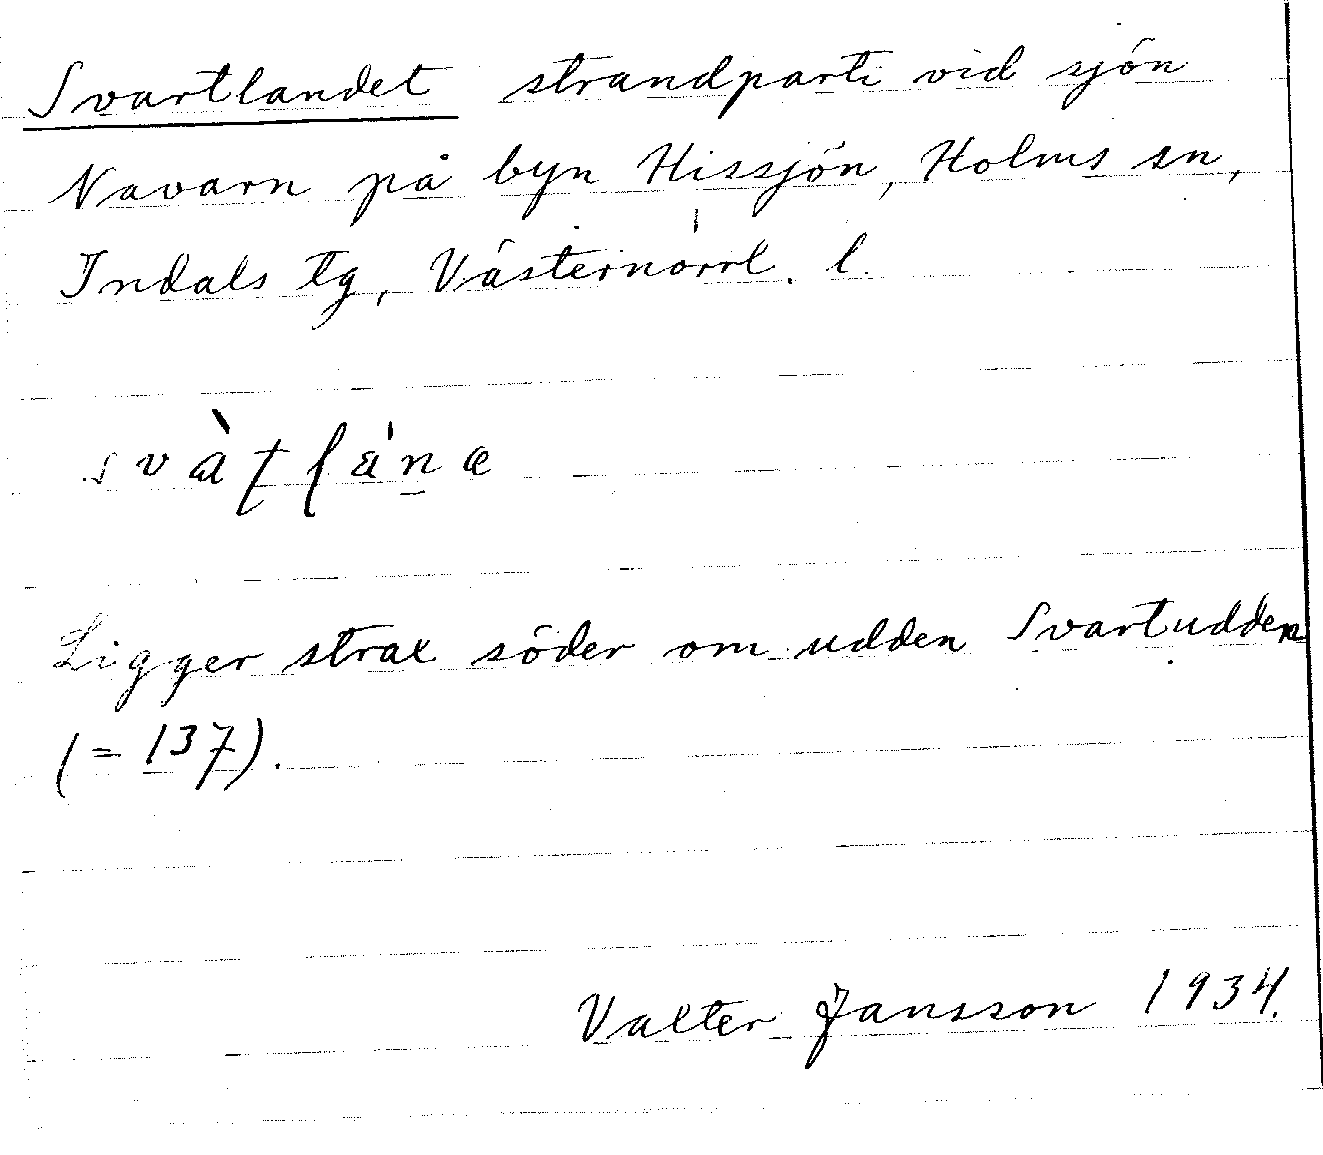 Svartlandet strandparti vid sjön
Navarn på byn Hissjön, Holms sn,
Indals tg, Västernorrl. l.
svàt̡ſáṉæ
Ligger strax söder om udden Svartudden
(= 137).
Valter Jansson 1934.